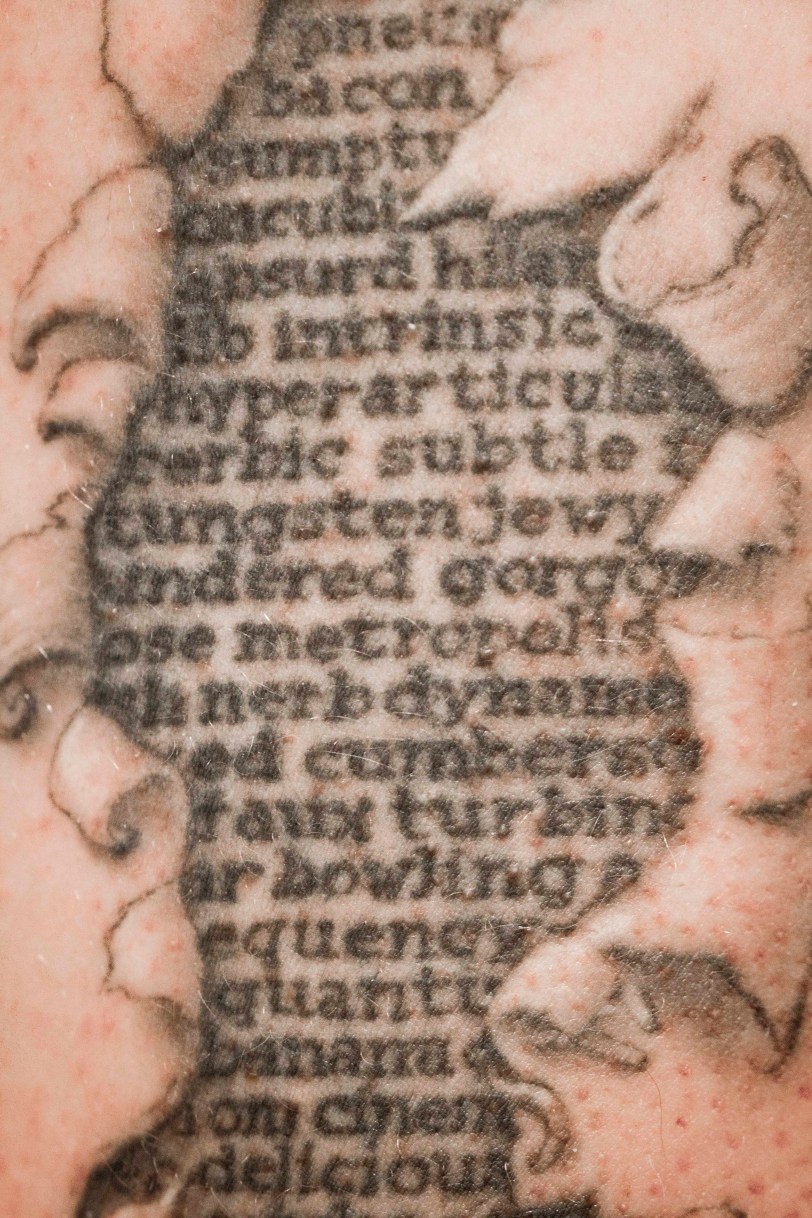 pneum
bacon
sumptu
absurd
intrinsic
hyperarticula
subtle
tungsten jewy
ndered gorgo
ose metropolis
nerb dyname
ed cumberso
faux turbin
ar bowling a
equency
quantu
banana
rom cinem
delicious